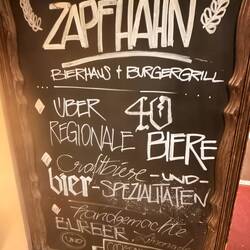 ZAPFHAHN
BIERHAUS + BURGERGRILL
ÜBER 40
REGIONALE BIERE
Craftbiere -UND-
bier-SPEZIALITÄTEN
Handgemachte
BURGER
UND